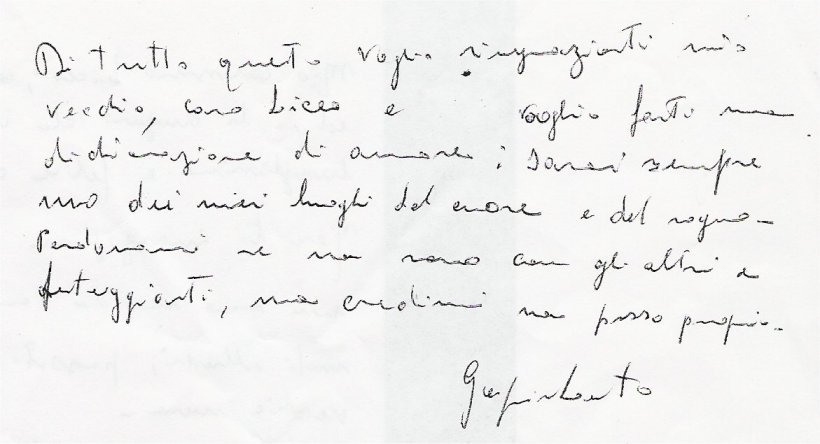 Di tutto questo voglio ringraziarti mio
vecchio, caro Liceo e voglio farti una
dichiarazione di amore: sarai sempre
uno dei miei luoghi del cuore e del sogno.
Perdonami se non sono con gli altri a
festeggiarti, ma credimi non posso proprio.